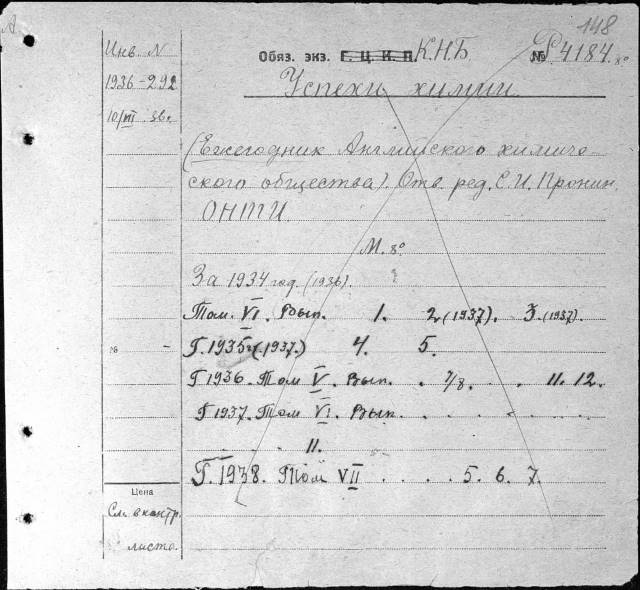 148
Инв. N
1936-292
10/III 36г.
Обяз. экз. Г. Ц. К. П. КНБ
№ Р4184. 8°
Успехи химии
(Ежегодник Английского химиче-
ского общества). Отв. ред. С. И. Пронин.
ОНТИ
М. 8°
За 1934 год. (1936).
Том. VI. Вып. 1. 2 (1937). 3. (1937).
№ -
Г. 1935 (1937.) 4. 5.
Г 1936. Том V. Вып. . 7/8. . . 11. 12.
Г 1937. Том VI. Вып. . . . . .
. 11.
Г. 1938. Том VII . . . . 5. 6. 7.
Цена
См. в контр.
листо.